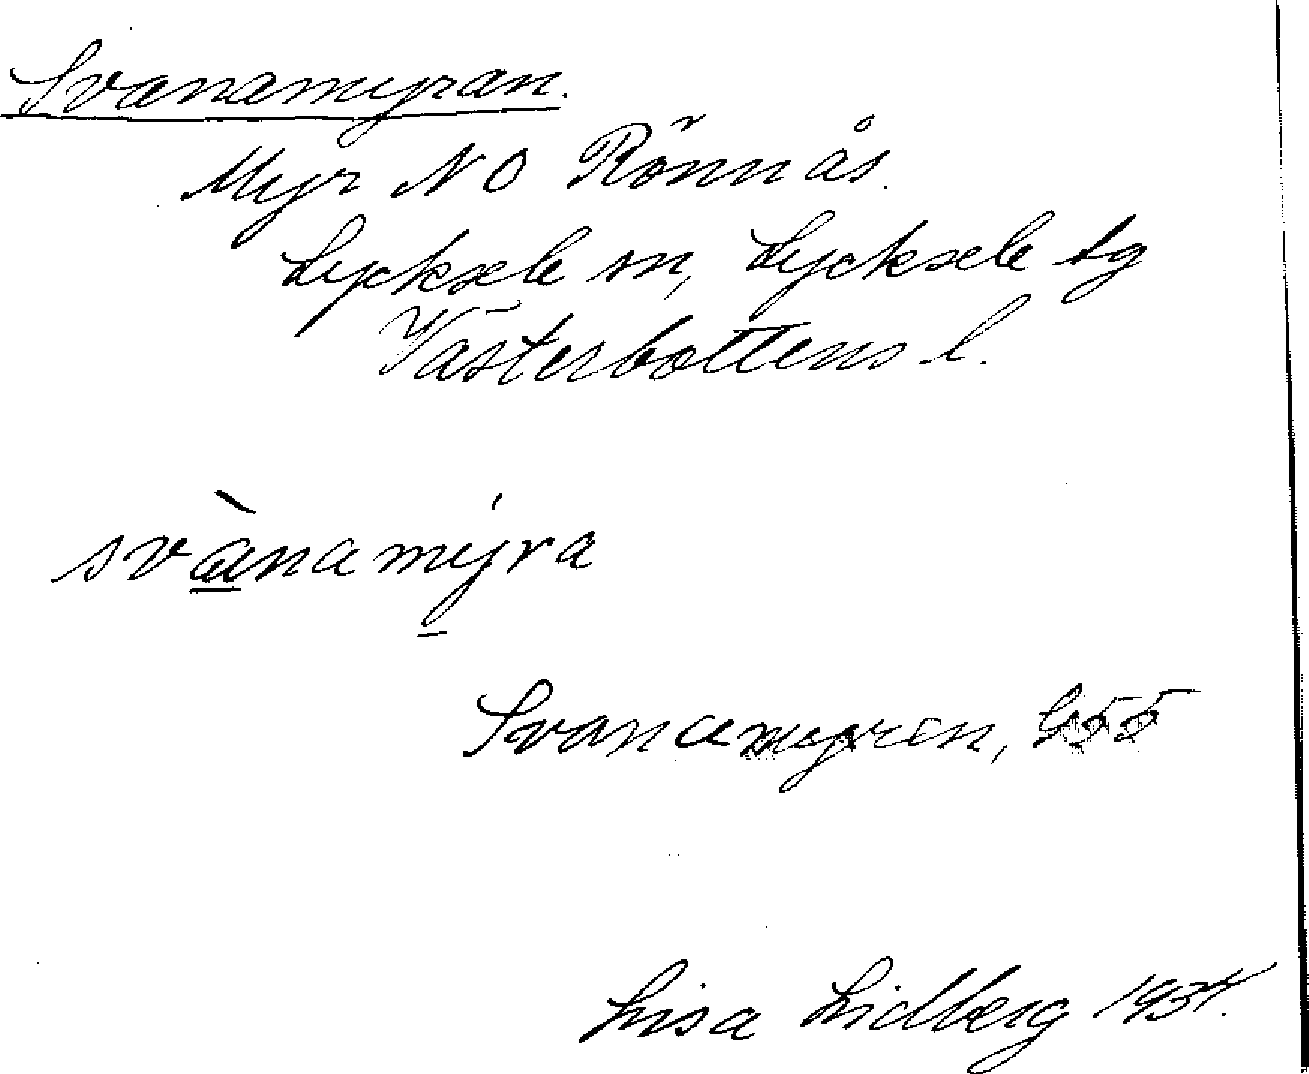 Svanamyran.
Myr NO Rönnås.
Lycksele sn, Lycksele tg
Västerbottens l.
svànamýra
Svanamyren, G55
Lisa Lidberg 1934.